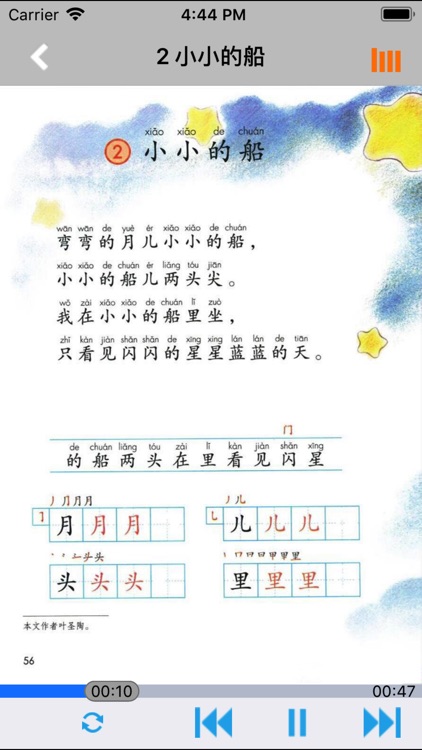 Carrier 4:44 PM
2 小小的船
xiǎo xiǎo de chuán
2 小小的船
wān wān de yuè ér xiǎo xiǎo de chuán
弯弯的月儿小小的船，
xiǎo xiǎo de chuán ér liǎng tóu jiān
小小的船儿两头尖。
wǒ zài xiǎo xiǎo de chuán lǐ zuò
我在小小的船里坐，
zhǐ kàn jiàn shǎn shǎn de xīng xing lán lán de tiān
只看见闪闪的星星蓝蓝的天。
门
de chuán liǎng tóu zài lǐ kàn jiàn shǎn xīng
的船两头在里看见闪星
丿 ⺆ 月 月
丿 儿
㇆ 月 月 月
乚 儿 儿 儿
头 头
丨 口 曰 日 甲 甲 里
头 头 头
里 里 里
本文作者叶圣陶。
56
00:10 00:47